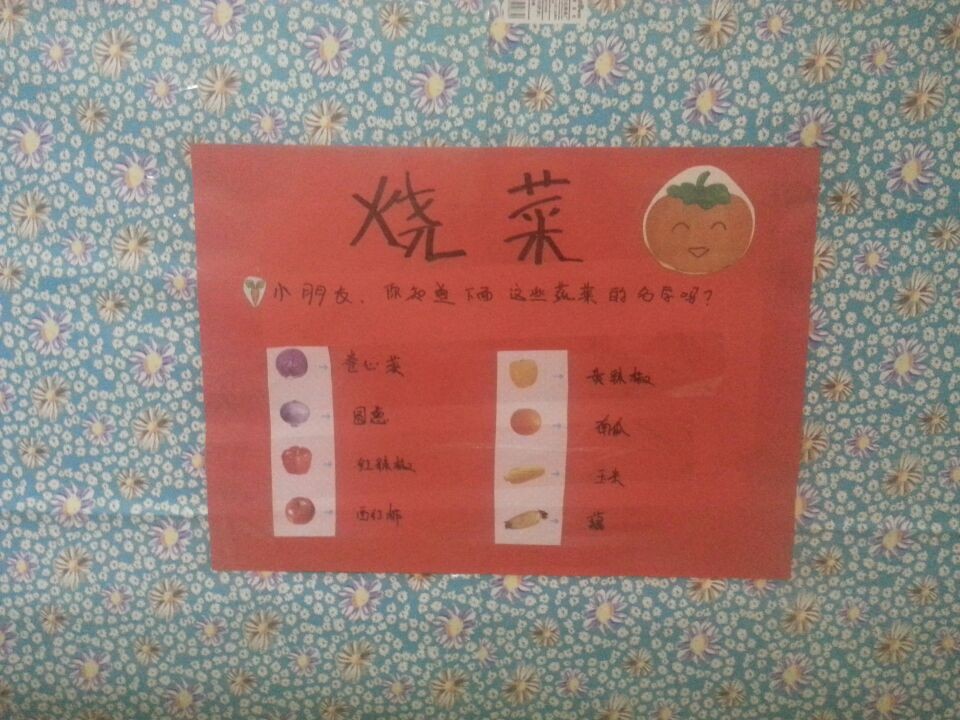 烧菜
小朋友、你知道下面这些蔬菜的名字吗？
卷心菜
圆葱
红辣椒
西红柿
黄辣椒
南瓜
玉米
藕